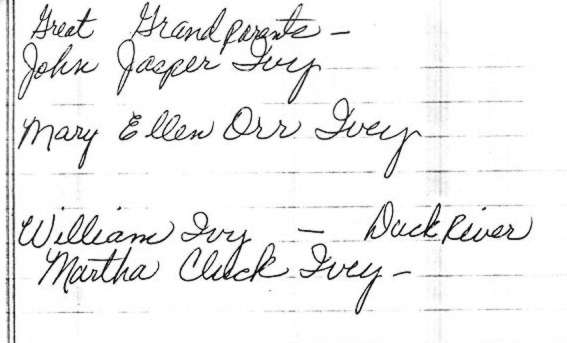 Great Grandparents -
John Jasper Ivy
Mary Ellen Orr Ivey
William Ivy - Duck River
Martha Cluck Ivey -